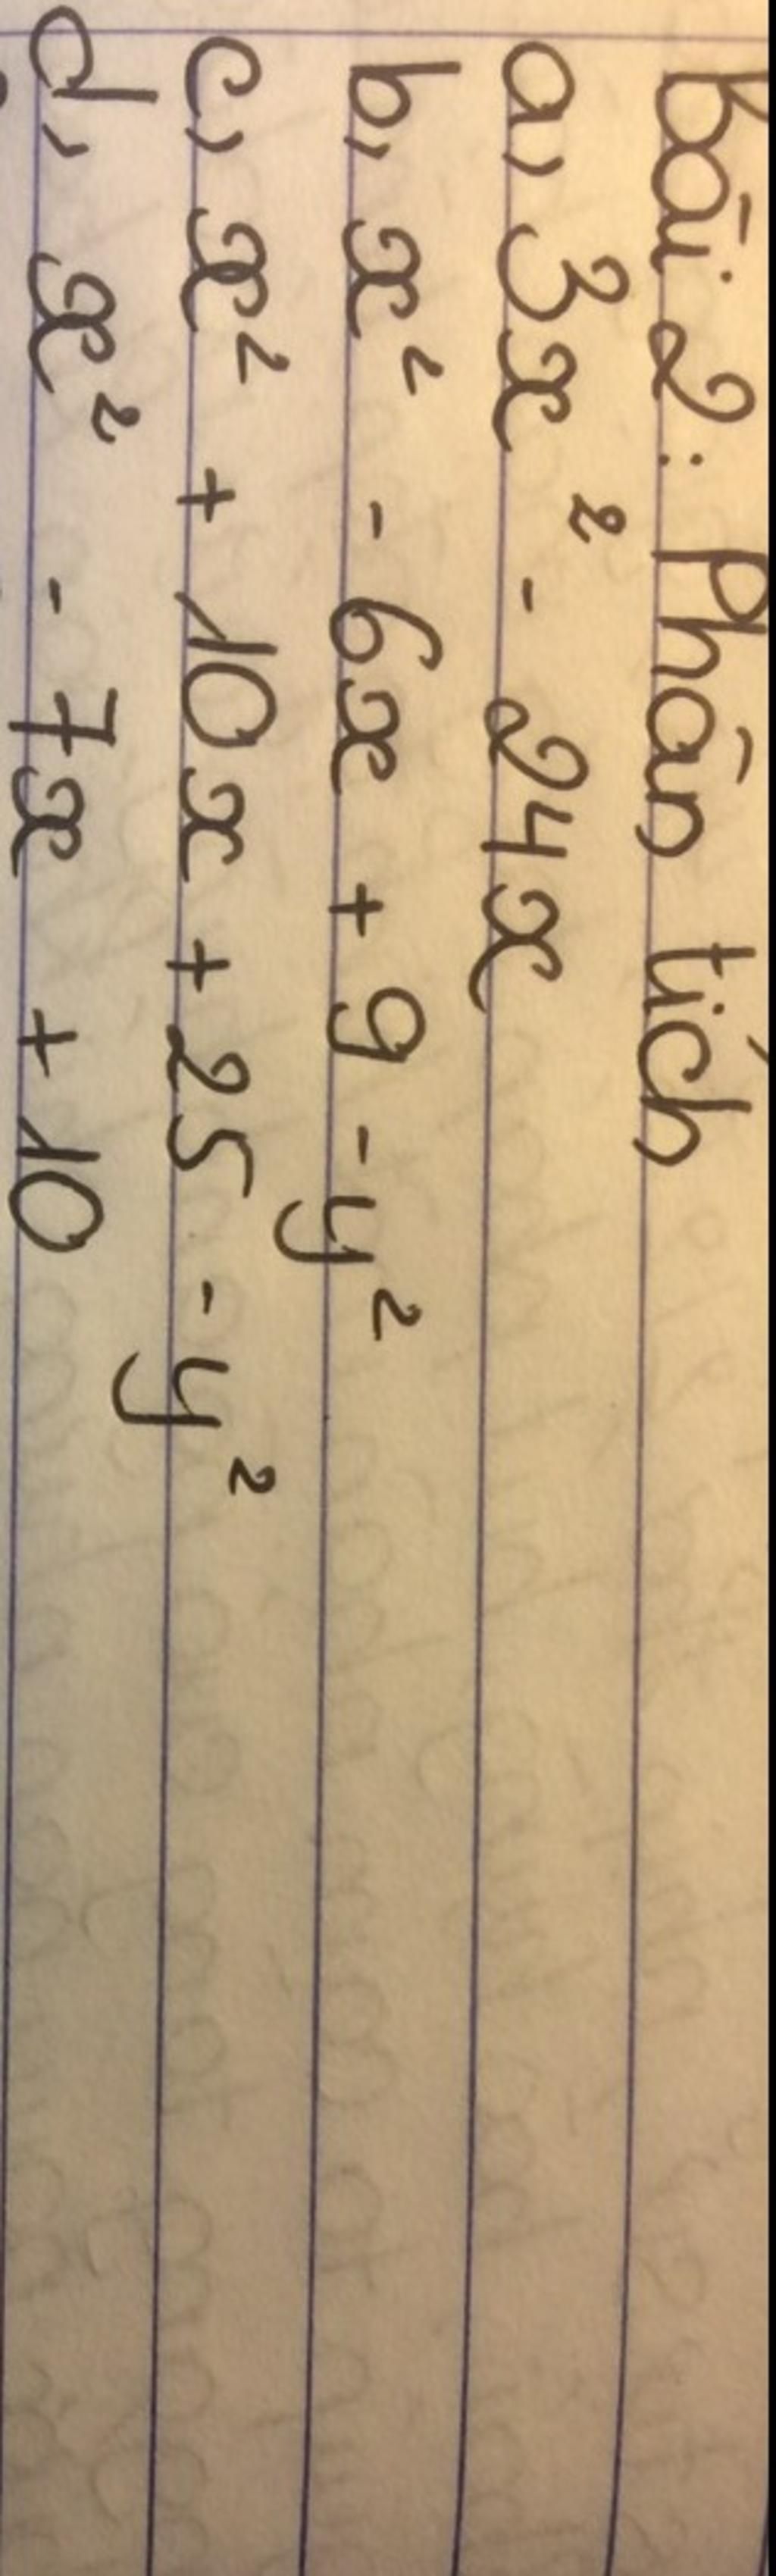 Bài 2: Phân tích
a, 3x² - 24x
b, x² - 6x + 9 - y²
c, x² + 10x + 25 - y²
d, x² - 7x + 10